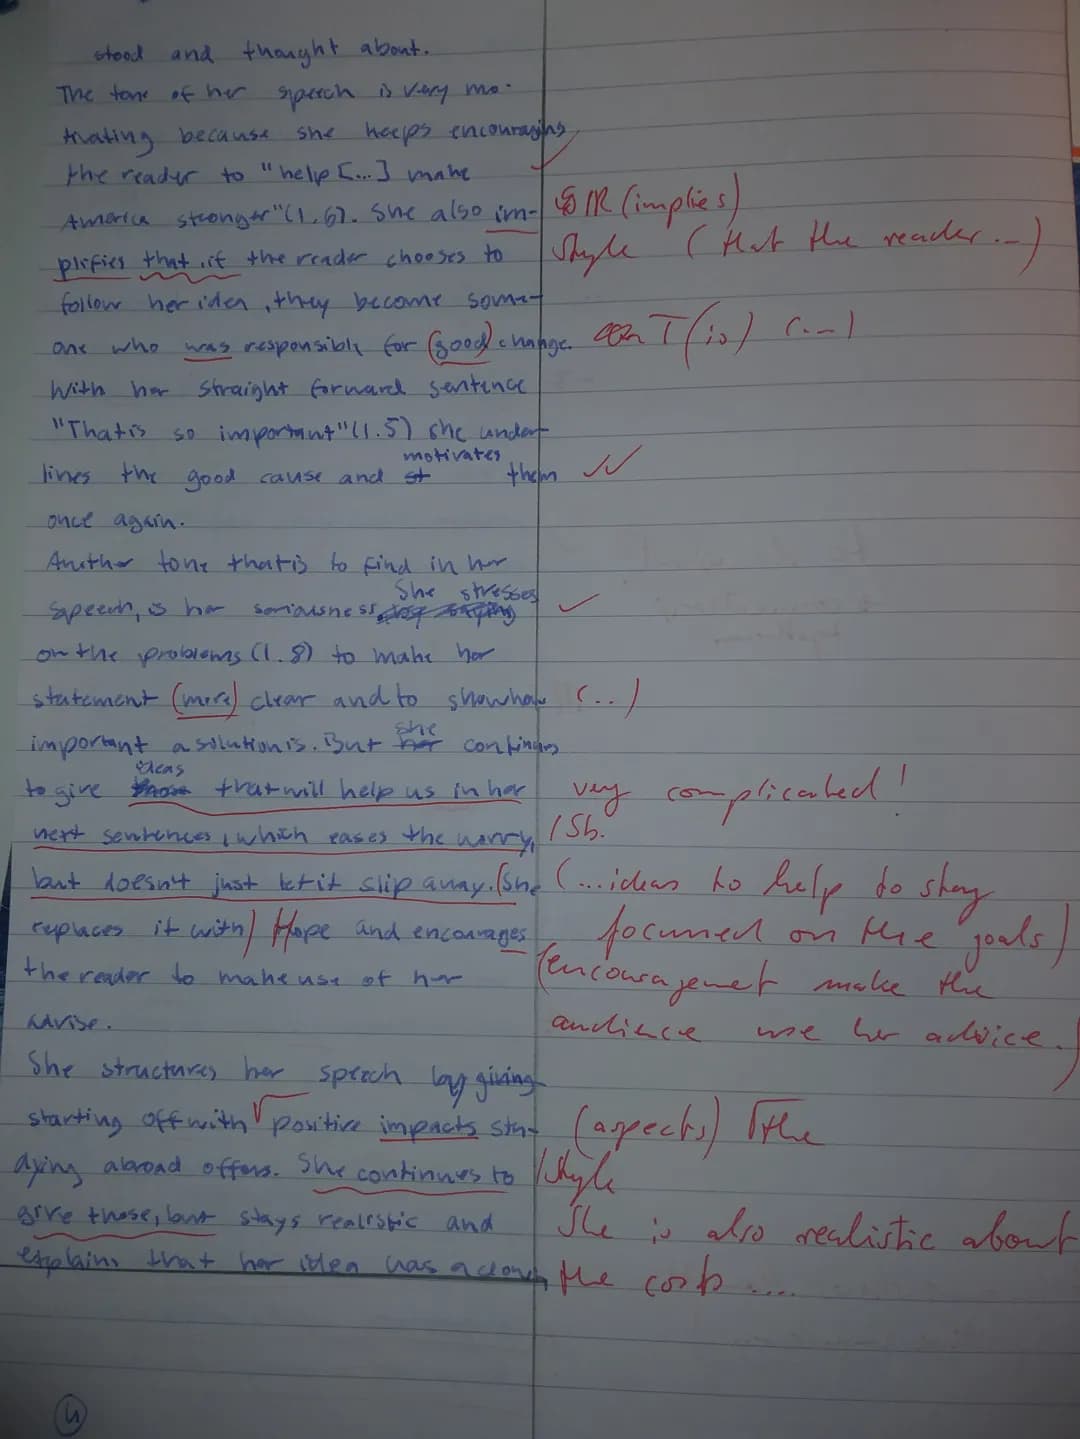 stood and thought about.
The tone of her speech is very mo-
tivating because she keeps encouraging
the reader to "help [...] make
America stronger" (l.6). She also im-
R (implies)
plifies that, if the reader chooses to
Style (that the reader ...)
follow her idea, they become some-
one who was responsible for (good) change.
T (is) (...)
With her straight forward sentence
"Thatis so important" (l.5) she under-
motivates
lines the good cause and them
once again.
Another tone thatis to find in her
She stresses
speech, is her seriousness,
on the problems (l.8) to make her
statement (more) clear and to showhow
(...)
she
important a solution is. But continues
ideas
to give that will help us in her
very complicated!
next sentences, which eases the worry,
/Sb.
but doesn't just let it slip away. (She
(...ideas to help to stay
replaces it with) Hope and encourages
focused on the goals)
the reader to make use of her
(encouragement make the
advise.
audience use her advice.)
She structures her speech by giving
starting off with √ positive impacts stu-
(aspects) √the
dying abroad offers. She continues to
/Style
give those, but stays realistic and
She is also realistic about
explains that her idea has a
the costs ....
4